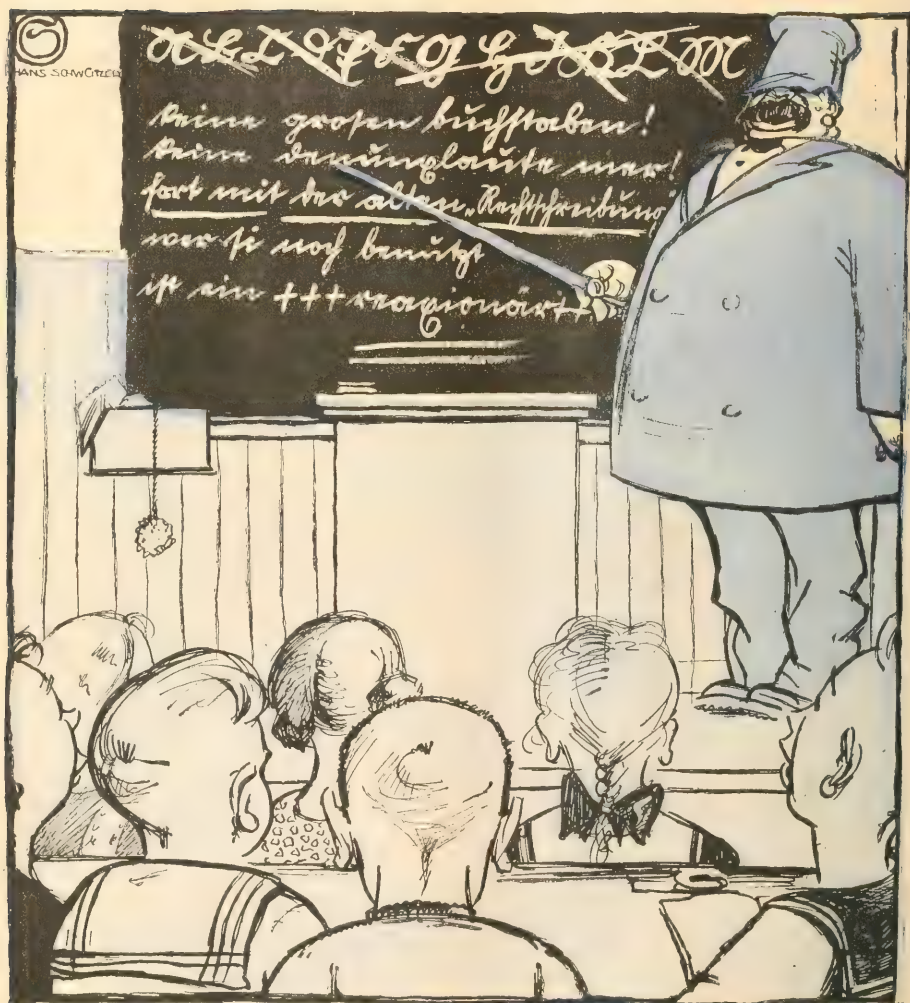 HANS
A B C D E F G H I K L M
keine grosen buchstaben!
keine denunxlaute mer!
fort mit der alten „Rechtschreibung
wer si noch benuzt
ist ein +++reaxionär++